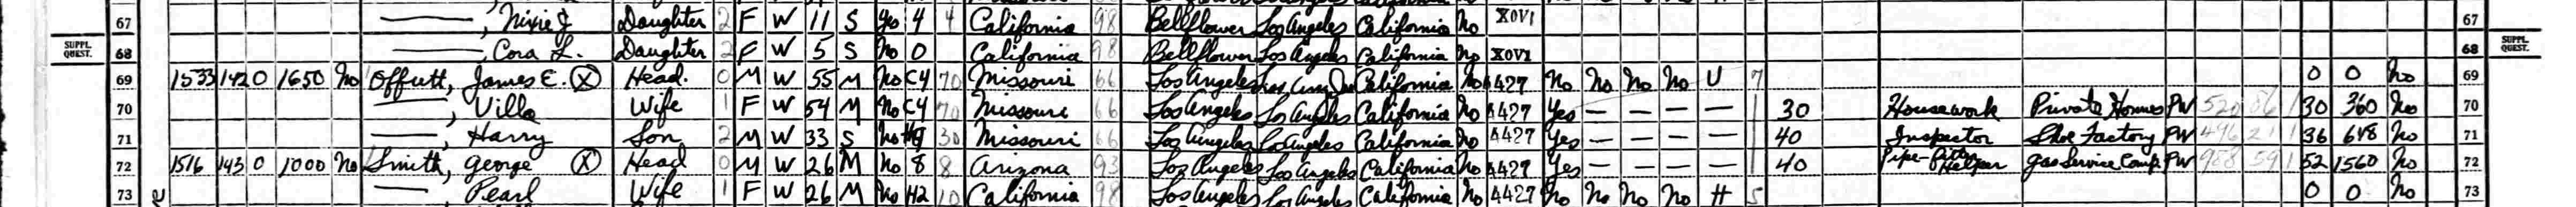 67 ——, Nixie J Daughter 2 F W 11 S Yes 4 4 California 98 Bellflower Los Angeles California No X0V1 67
SUPPL. QUEST. 68 ——, Cora L. Daughter 2 F W 5 S No 0 California 98 Bellflower Los Angeles California No X0V1 68 SUPPL. QUEST.
69 1533 142 0 1650 No Offutt, James E. Ⓧ Head. 0 M W 55 M No C4 70 Missouri 66 Los Angeles Los Angeles California No 4427 No No No No U 7 0 0 No 69
70 ——, Villa Wife 1 F W 54 M No C4 70 Missouri 66 Los Angeles Los Angeles California No 4427 Yes — — — 30 Housework Private Homes PW 520 86 1 30 360 No 70
71 ——, Harry Son 2 M W 33 S No 30 Missouri 66 Los Angeles Los Angeles California No 4427 Yes — — — 40 Inspector Shoe Factory PW 496 21 1 36 648 No 71
72 1516 143 0 1000 No Smith, George Ⓧ Head 0 M W 26 M No 8 8 Arizona 93 Los Angeles Los Angeles California No 4427 Yes — — — 40 Pipe-Fitter Helper Gas Service Comp. PW 988 59 1 52 1560 No 72
73 ——, Pearl Wife 1 F W 26 M No H2 10 California 98 Los Angeles Los Angeles California No 4427 No No No No H 5 0 0 No 73